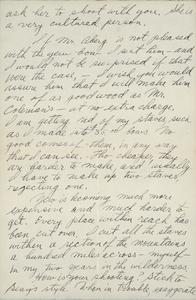 ask her to shoot with you. She is
a very cultured person.
If Mr. Aberg is not pleased
with the yew bow I sent him - and
I would not be surprised if that
were the case, - I wish you would
assure him that I will make him
one of as good wood as Mr.
Coleman's - at no extra charge.
I am getting rid of my staves such
as I made into $5.00 bows. No
good comes of them, in any way
that I can see. Tho' cheaper they
are harder to make, and usually
I have to make up two staves
rejecting one.
Yew is becoming much more
expensive and much harder to
get. Every place within reach has
been cut over. I cut all the staves
within a section of the mountains
a hundred miles across - myself -
in my two years in the wilderness.
How is your shooting? Stick to
style. When in trouble, exaggerate